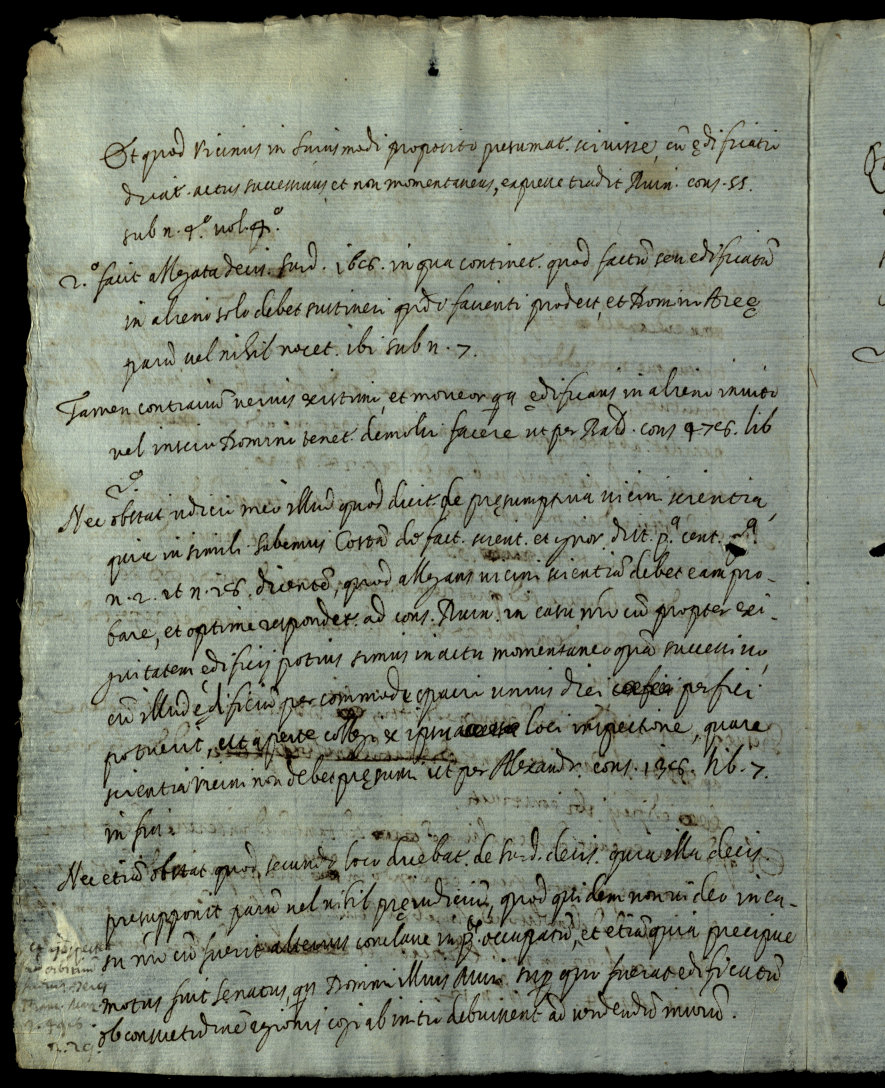 Et quod vicinus in huiusmodi proposito presumat. scivisse, cũ ędificatio
dicat. actus successivus et non momentaneus, eaque tradit Ruin. cons. 55.
sub n. 4.º vol. 4.º
2.º facit allegata decis. Surd. 166. in qua continet. quod factũ seu edificatũ
in alieno solo debet sustineri qñdo facienti prodest, et Domini Areę
parũ vel nihil nocet. ibi sub n. 7.
Tamen contrariũ verius existimo, et moveor quia ędificans in alieno invito
vel inscio Domino tenet. demoliri facere ut per Bald. cons 476. lib
2.º
Nec obstat iudicio meo illud quod dicit. de pręsumptiva vicini scientia,
quia in simili habemus Costã de fact. scient. et ignor. dist. p.ª cent.
n. 2. et n. 26. dicentẽ, quod allegans vicini scientiã debet eam pro-
bare, et optime respondet. ad cons. Ruin. in casu nrõ cũ propter exi-
guitatem edificij potius simus in actu momentaneo quã successivo,
cũ illud ędificiũ per commode spatio unius diei perfici
potuerit, ut aperte collig. ex ipsa loci inspectione, quare
scientia vicini non debet pręsumi ut per Alexandr. cons. 136. lib. 7.
in fin:
Nec etiã obstat quod secundo loco dicebat. de Surd. decis. quia illa decis.
presupponit parũ vel nihil pręiudiciũ, quod quidem non video in ca-
su nrõ cũ fuerit alterius conclave in occupatũ, et etiã quia precipue
motus fuit Senatus, quia Domini illius Muri sup. quo fuerat edificatũ
ob consuetudinẽ regionis cogi ab initio debuissent ad vendendũ murũ.
n. 29.